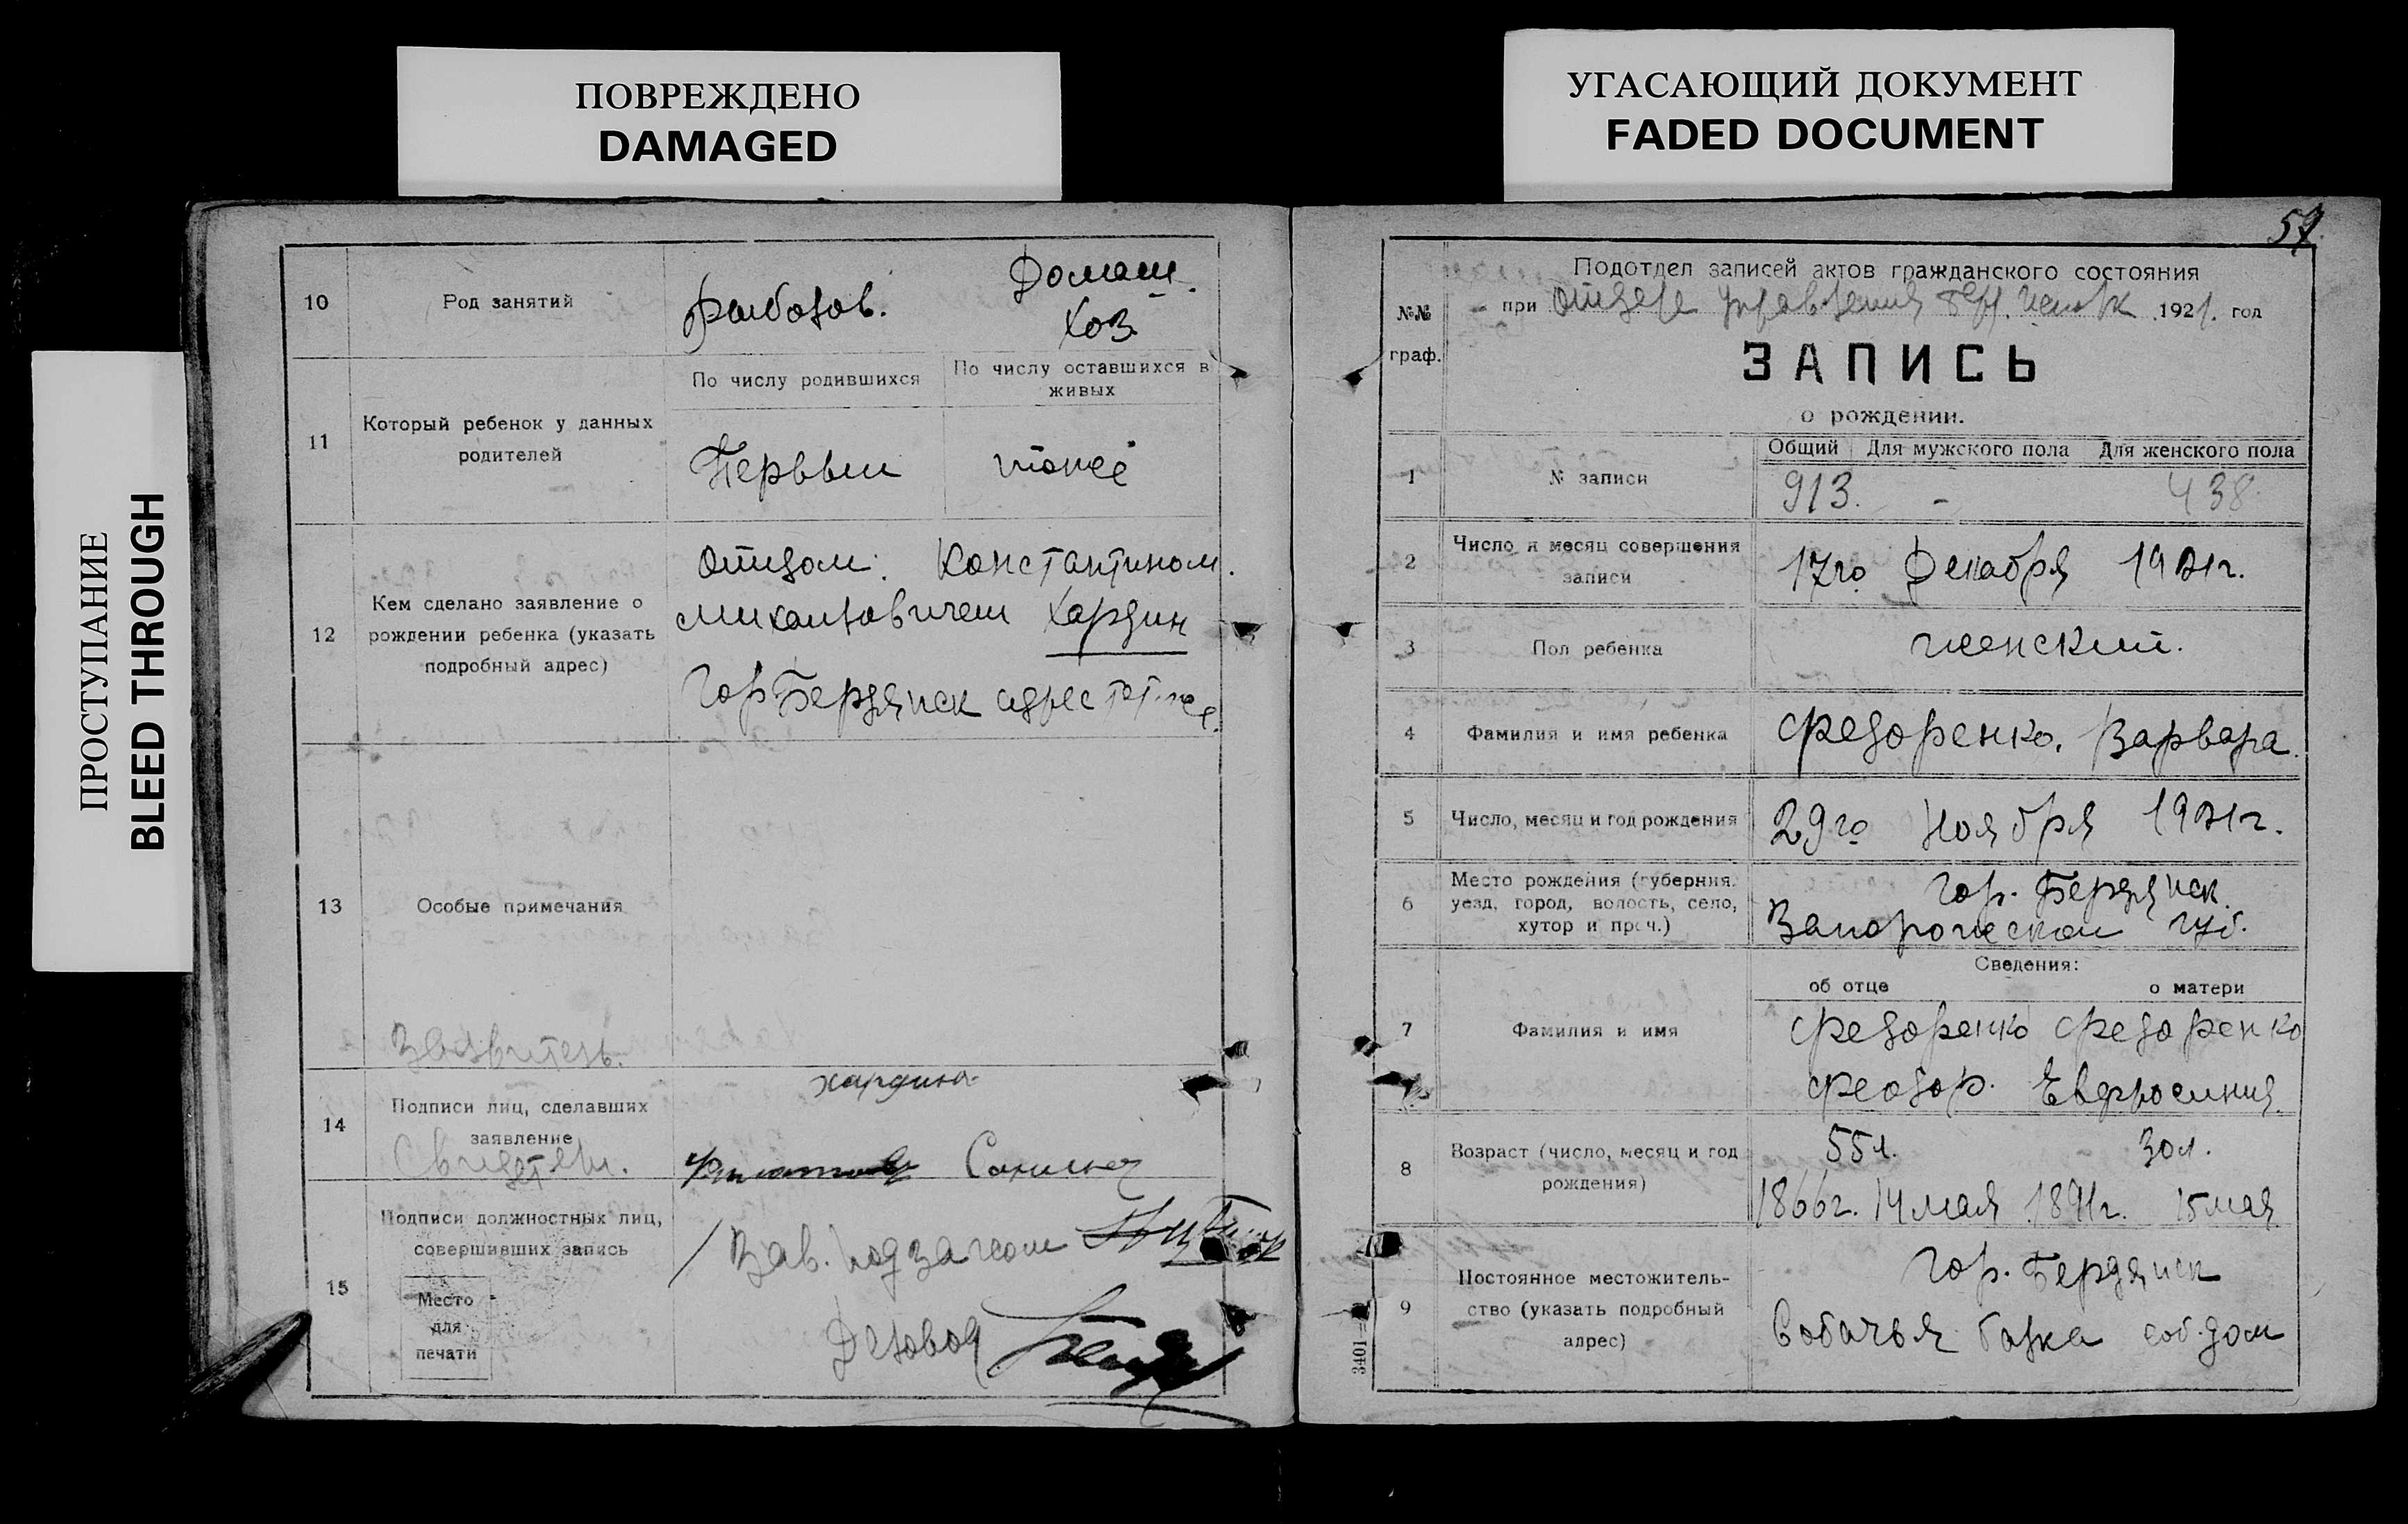 ПОВРЕЖДЕНО
DAMAGED
УГАСАЮЩИЙ ДОКУМЕНТ
FADED DOCUMENT
ПРОСТУПАНИЕ
BLEED THROUGH
10
Род занятий
Рыболов.
Домаш.
Хоз
11
Который ребенок у данных
родителей
По числу родившихся
По числу оставшихся в
живых
Первый
тоже
12
Кем сделано заявление о
рождении ребенка (указать
подробный адрес)
Отцом: Константином
Михайловичем Хардин
Гор Бердянск адрес тот же
13
Особые примечания
Заявитель.
14
Подписи лиц, сделавших
заявление
Свидетели.
Хардин
15
Подписи должностных лиц,
совершивших запись
Место
для
печати
Зав. подзагсом
Деловод
57
№№
граф.
Подотдел записей актов гражданского состояния
при Отделе Управления Бердянск 1921. год
ЗАПИСЬ
о рождении.
1
№ записи
Общий Для мужского пола Для женского пола
913. - 438
2
Число и месяц совершения
записи
17го Декабря 1921г.
3
Пол ребенка
женский.
4
Фамилия и имя ребенка
Федоренко. Варвара.
5
Число, месяц и год рождения
29го Ноября 1921г.
6
Место рождения (губерния,
уезд, город, волость, село,
хутор и проч.)
Гор. Бердянск
Запорожской губ.
Сведения:
об отце
о матери
7
Фамилия и имя
Федоренко Федоренко
Феодор. Евфросиния
8
Возраст (число, месяц и год
рождения)
55л. 30л.
1866г. 14 мая 1891г. 15 мая
9
Постоянное местожитель-
ство (указать подробный
адрес)
Гор. Бердянск
Собачья балка соб. дом
3401